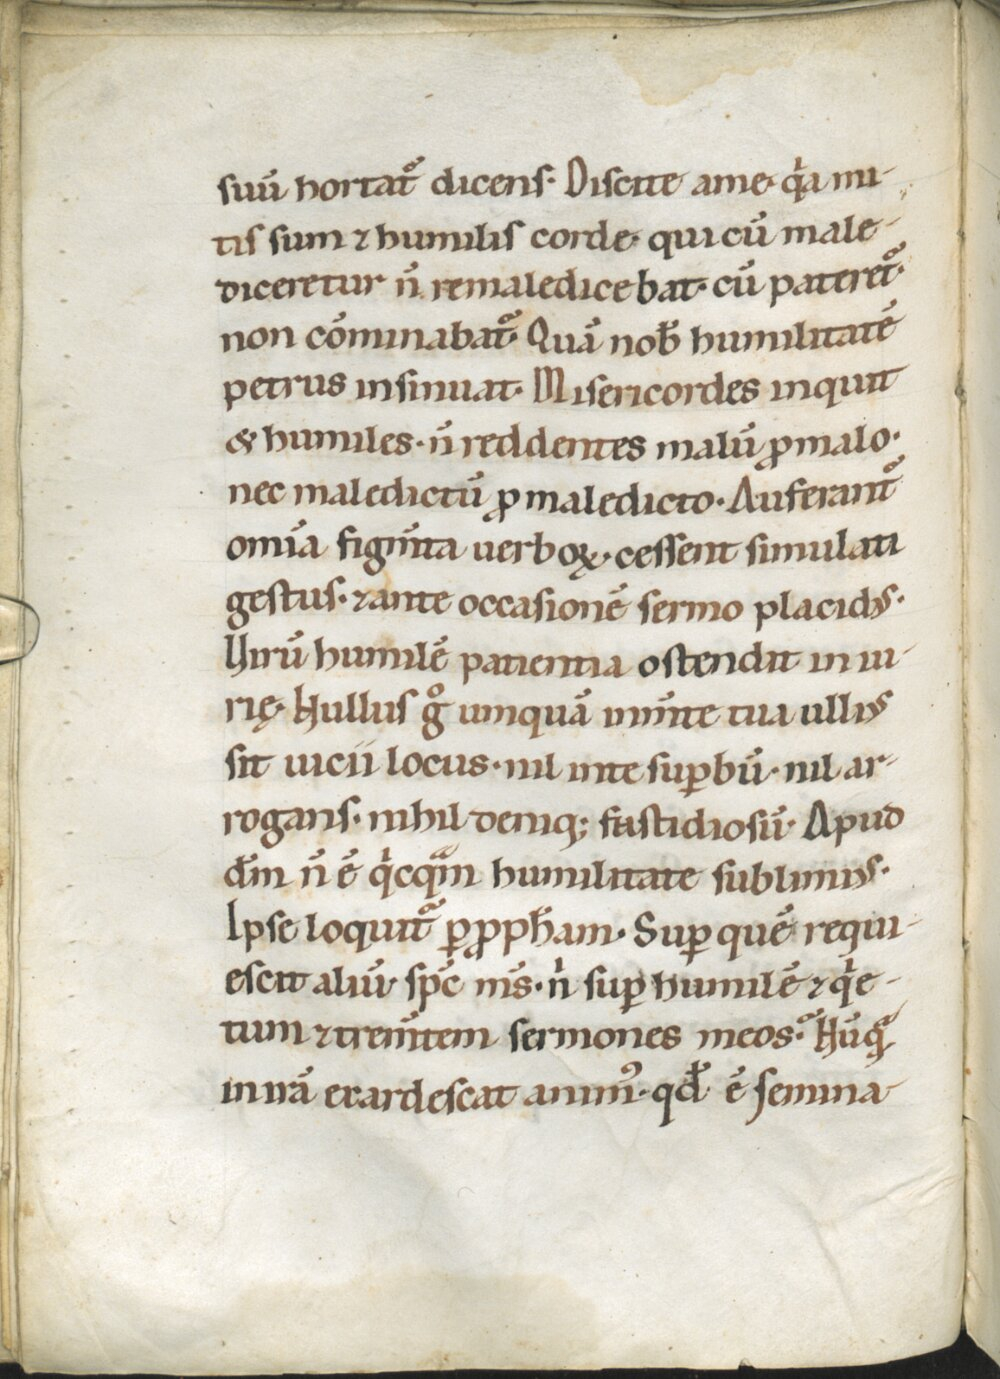 suū hortat᷑ dicens. Discite ame. qͥa mi-
tis sum ⁊ humilis corde. qui cū male-
diceretur n̄ remaledicebat. cū pateret᷑.
non cōminabat᷑. Quā nob̄ humilitatē
petrus insinuat. Misericordes inquit
& humiles. n̄ reddentes malū ꝓmalo.
nec maledictū ꝓ maledicto. Auferant᷑
om̄ia figm̄ta uerboꝝ. cessent simulati
gestus. ⁊ante occasionē sermo placidꝰ.
Uirū humilē patientia ostendit in iu-
rię. Nullus gͦ umquā inm̄te tua ullis
sit uicii locus. nil inte suꝑbū. nil ar-
rogans. nihil deniq; fastidiosū. Apud
dm̄ n̄ ē qͥcqᷓm humilitate sublimiꝰ.
Ipse loquit᷑ ꝑ ꝓph̄am. Suꝑ quē requi-
escit aliū sp̄c m̄s. nͥ suꝑ humilē ⁊ qͥe-
tum ⁊trem̄tem sermones meos. Nūqᷓ
inirā exardescat animꝰ. qd̄ ē semina-